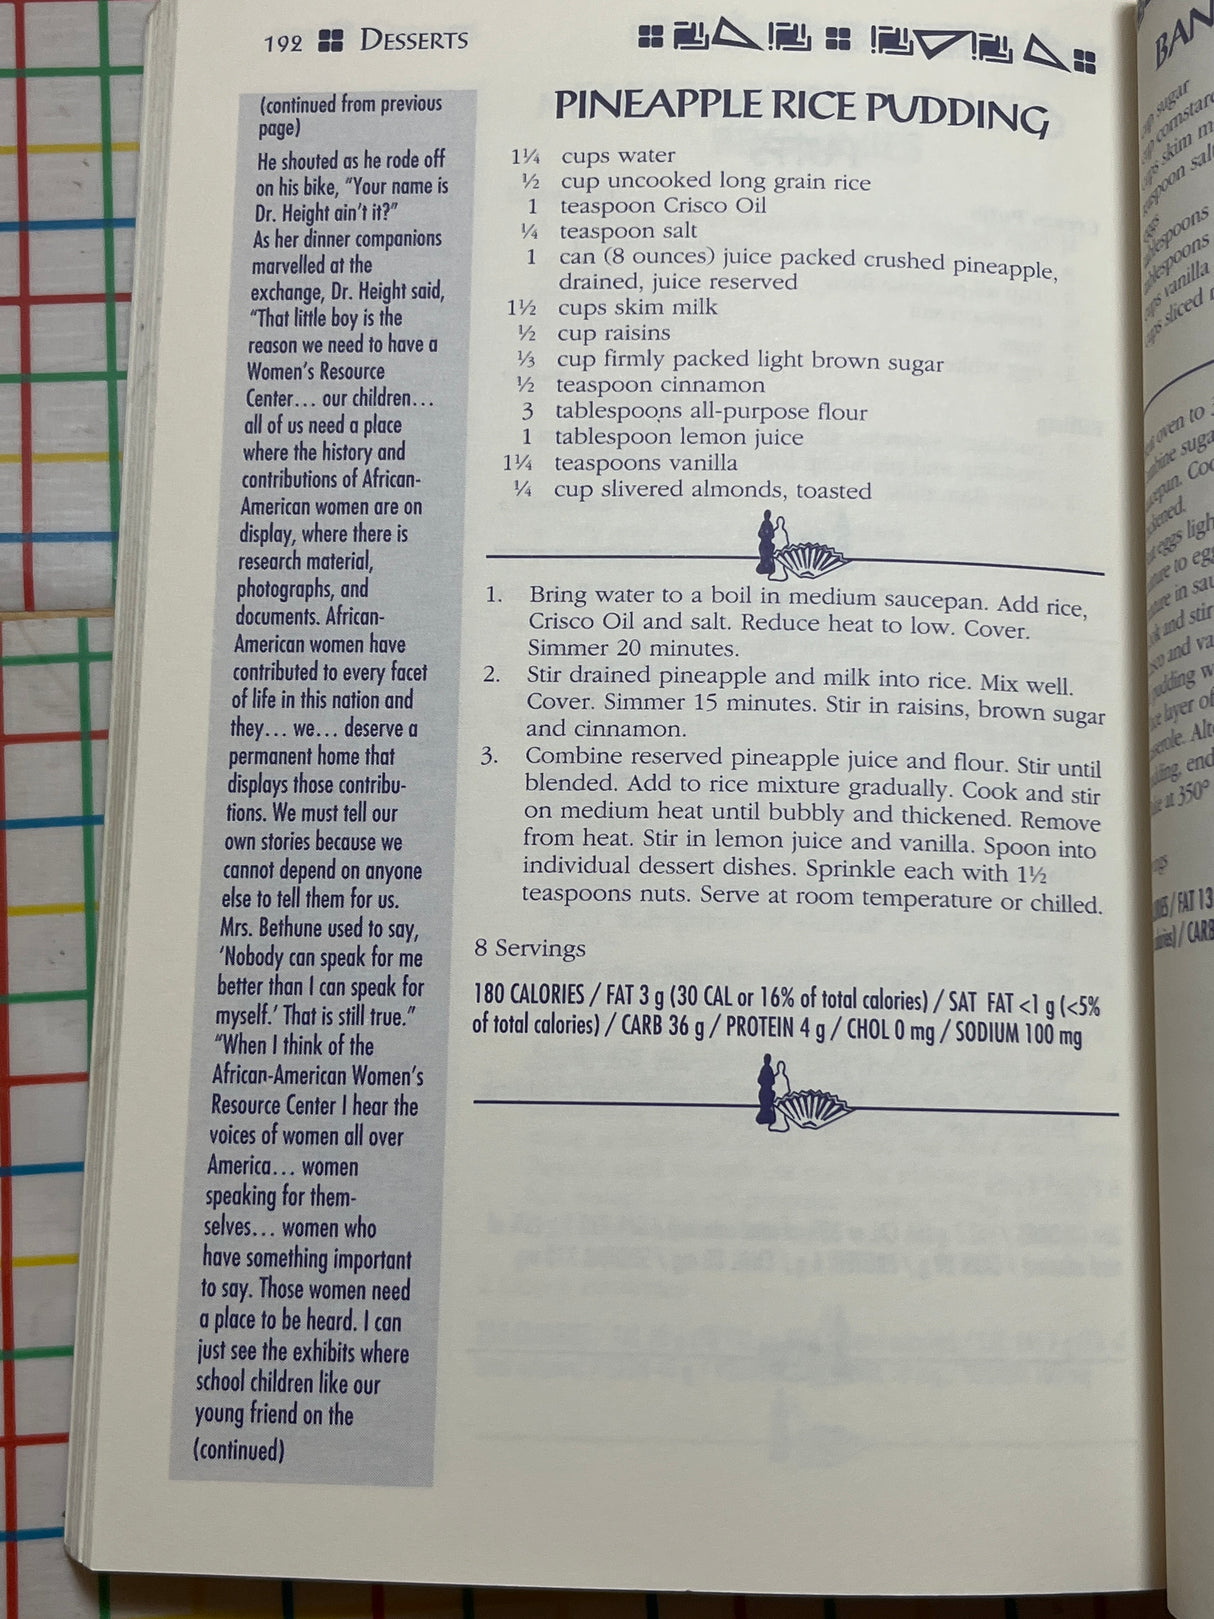 192 DESSERTS
(continued from previous
page)
He shouted as he rode off
on his bike, “Your name is
Dr. Height ain’t it?”
As her dinner companions
marvelled at the
exchange, Dr. Height said,
“That little boy is the
reason we need to have a
Women’s Resource
Center... our children...
all of us need a place
where the history and
contributions of African-
American women are on
display, where there is
research material,
photographs, and
documents. African-
American women have
contributed to every facet
of life in this nation and
they... we... deserve a
permanent home that
displays those contribu-
tions. We must tell our
own stories because we
cannot depend on anyone
else to tell them for us.
Mrs. Bethune used to say,
‘Nobody can speak for me
better than I can speak for
myself.’ That is still true.”
“When I think of the
African-American Women’s
Resource Center I hear the
voices of women all over
America... women
speaking for them-
selves... women who
have something important
to say. Those women need
a place to be heard. I can
just see the exhibits where
school children like our
young friend on the
(continued)
PINEAPPLE RICE PUDDING
1¼ cups water
½ cup uncooked long grain rice
1 teaspoon Crisco Oil
¼ teaspoon salt
1 can (8 ounces) juice packed crushed pineapple,
drained, juice reserved
1½ cups skim milk
½ cup raisins
⅓ cup firmly packed light brown sugar
½ teaspoon cinnamon
3 tablespoons all-purpose flour
1 tablespoon lemon juice
1¼ teaspoons vanilla
¼ cup slivered almonds, toasted
1. Bring water to a boil in medium saucepan. Add rice,
Crisco Oil and salt. Reduce heat to low. Cover.
Simmer 20 minutes.
2. Stir drained pineapple and milk into rice. Mix well.
Cover. Simmer 15 minutes. Stir in raisins, brown sugar
and cinnamon.
3. Combine reserved pineapple juice and flour. Stir until
blended. Add to rice mixture gradually. Cook and stir
on medium heat until bubbly and thickened. Remove
from heat. Stir in lemon juice and vanilla. Spoon into
individual dessert dishes. Sprinkle each with 1½
teaspoons nuts. Serve at room temperature or chilled.
8 Servings
180 CALORIES / FAT 3 g (30 CAL or 16% of total calories) / SAT FAT <1 g (<5%
of total calories) / CARB 36 g / PROTEIN 4 g / CHOL 0 mg / SODIUM 100 mg
BAN
sugar
skim
salt
eggs
vanilla
sliced
oven to
eggs
and stir
and
layer of
end
at 350°
/ FAT 13
/ CARB